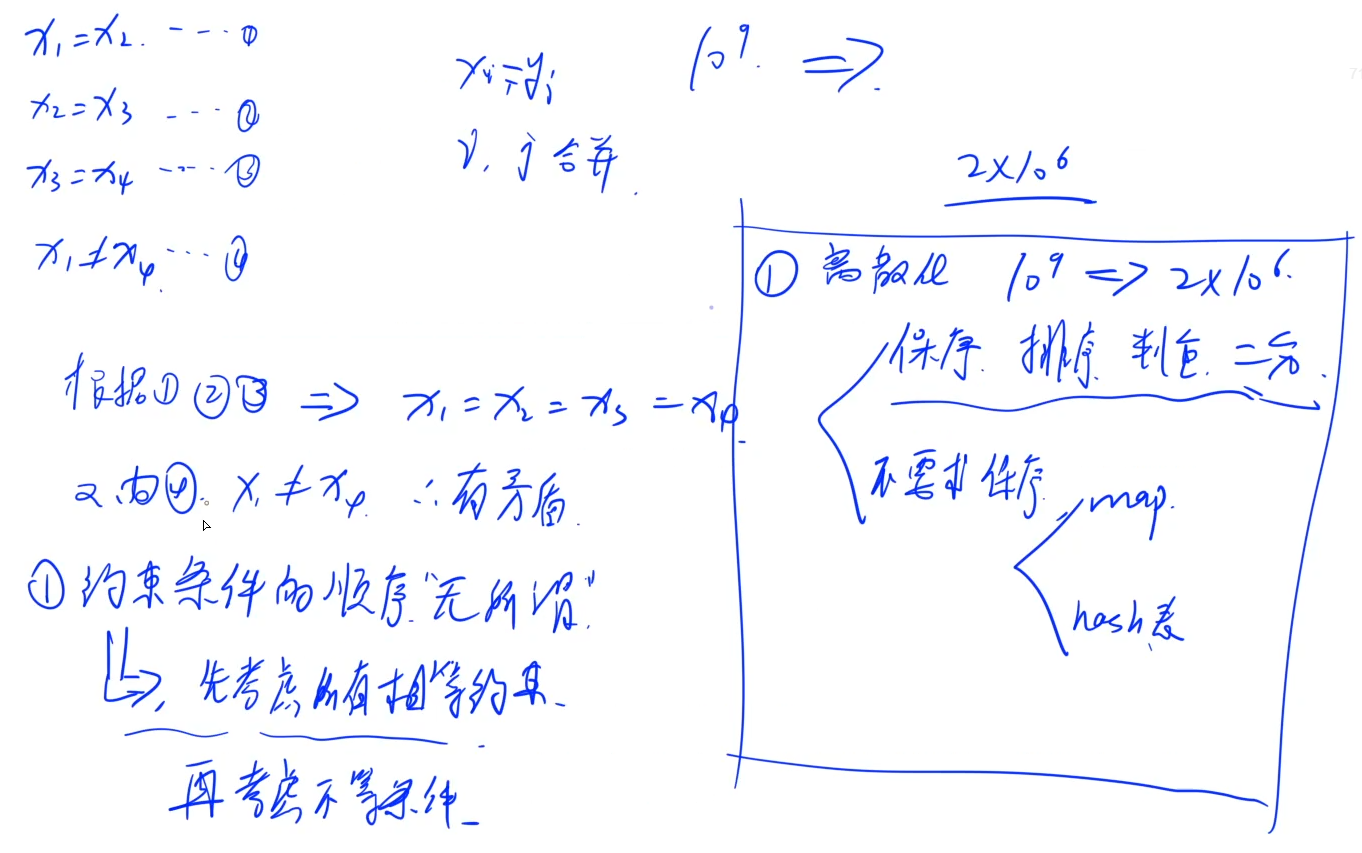 x₁=x₂. ---- ①
x₂=x₃ ---- ②
x₃=x₄ ---- ③
x₁≠x₄ ---- ④
xᵢ=yⱼ
i, j 合并.
根据①②③ => x₁=x₂=x₃=x₄.
又由④. x₁≠x₄. ∴有矛盾.
① 约束条件的顺序"无所谓".
先考虑所有相等约束.
再考虑不等条件.
10⁹. =>.
2×10⁶
① 离散化 10⁹ => 2×10⁶.
保序. 排序. 判重. 二分.
不要求保序.
map.
hash表
71